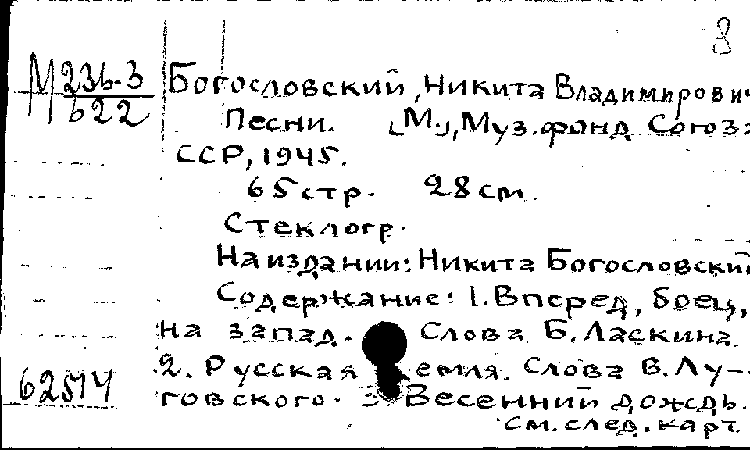 3
М 23б-3
Б22
Богословский, Никита Владимирович
Песни. [М.], Муз. фонд Союза
ССР, 1945.
65 стр. 28 см.
Стеклогр.
На издании: Никита Богословский
Содержание: 1. Вперед, боец,
на запад. Слова Б. Ласкина.
2. Русская земля. Слова В. Лу-
62514
говского. 3 Весенний дождь.
См. след. карт.